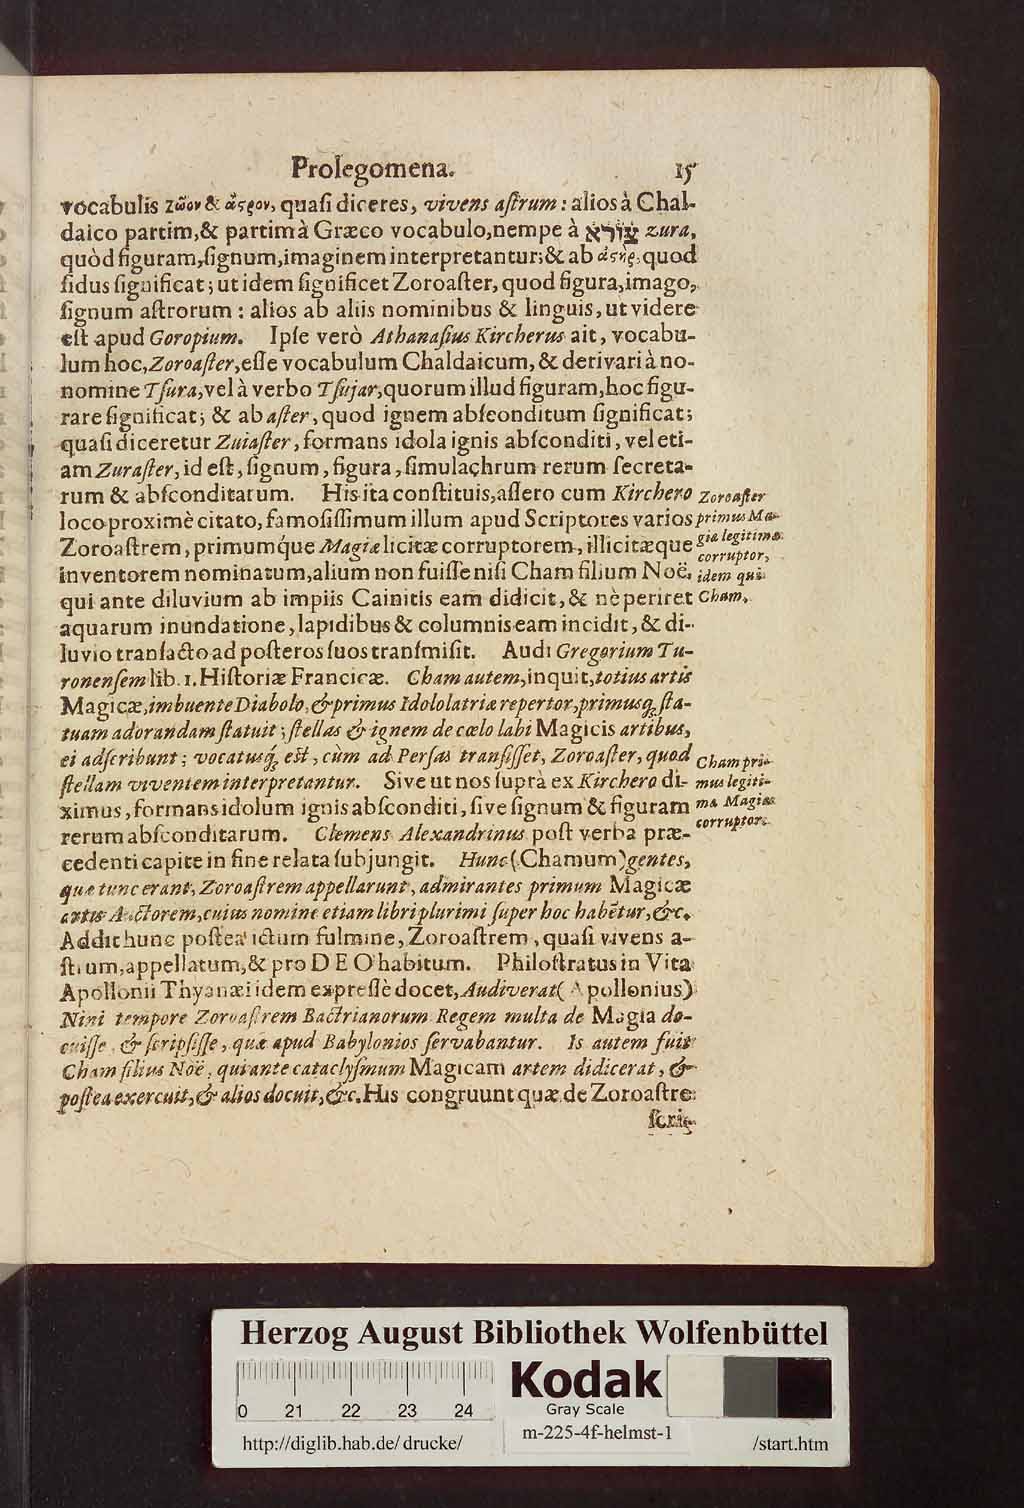 Prolegomena. 15
vocabulis ζῶον & ἄςρον, quaſi diceres, vivens aſtrum: alios à Chal-
daico partim, & partim à Græco vocabulo, nempe à צורא zura,
quòd figuram, ſignum, imaginem interpretantur; & ab ἀςὴρ, quod
ſidus ſignificat; ut idem ſignificet Zoroaſter, quod figura, imago,
ſignum aſtrorum: alios ab aliis nominibus & linguis, ut videre
eſt apud Goropium. Ipſe verò Athanaſius Kircherus ait, vocabu-
lum hoc, Zoroaſter, eſſe vocabulum Chaldaicum, & derivari à no-
nomine Tſura, vel à verbo Tſujar, quorum illud figuram, hoc figu-
rare ſignificat; & ab aſter, quod ignem abſconditum ſignificat;
quaſi diceretur Zuiaſter, formans idola ignis abſconditi, vel eti-
am Zuraſter, id eſt, ſignum, figura, ſimulachrum rerum ſecreta-
rum & abſconditarum. His ita conſtituis, aſſero cum Kirchero
loco proximè citato, famoſiſſimum illum apud Scriptores varios
Zoroaſtrem, primumq́ue Magiæ licitæ corruptorem, illicitæque
inventorem nominatum, alium non fuiſſe niſi Cham filium Noë,
qui ante diluvium ab impiis Cainitis eam didicit, & nè periret
aquarum inundatione, lapidibus & columnis eam incidit, & di-
luvio tranſacto ad poſteros ſuos tranſmiſit. Audi Gregorium Tu-
ronenſem lib. 1. Hiſtoriæ Francicæ. Cham autem, inquit, totius artis
Magicæ, imbuente Diabolo, & primus Idololatriæ repertor, primusq; ſta-
tuam adorandam ſtatuit; ſtellas & ignem de cœlo labi Magicis artibus,
ei adſcribunt; vocatusq́; eſt, cùm ad Perſas tranſiſſet, Zoroaſter, quod
ſtellam viventem interpretantur. Sive ut nos ſuprà ex Kirchero di-
ximus, formans idolum ignis abſconditi, ſive ſignum & figuram
rerum abſconditarum. Clemens Alexandrinus poſt verba præ-
cedenti capite in fine relata ſubjungit. Hunc (Chamum) gentes,
quæ tunc erant, Zoroaſtrem appellarunt, admirantes primum Magicæ
artis Auctorem, cuius nomine etiam libri plurimi ſuper hoc habẽtur, &c.
Addit hunc poſtea ictum fulmine, Zoroaſtrem, quaſi vivens a-
ſtrum, appellatum, & pro DEO habitum. Philoſtratus in Vita
Apollonii Thyanæi idem expreſſè docet, Audiverat (Apollonius)
Nini tempore Zoroaſtrem Bactrianorum Regem multa de Magia do-
cuiſſe, & ſcripſiſſe, quæ apud Babylonios ſervabantur. Is autem fuit
Cham filius Noë, qui ante cataclyſmum Magicam artem didicerat, &
poſtea exercuit, & alios docuit, &c. His congruunt quæ de Zoroaſtre
ſcrip-
Zoroaſter
primus Ma-
giæ legitimæ
corruptor,
idem qui
Cham.
Cham pri-
mus legiti-
mæ Magiæ
corruptor.
Herzog August Bibliothek Wolfenbüttel
0 21 22 23 24
Kodak
Gray Scale
http://diglib.hab.de/drucke/
m-225-4f-helmst-1
/start.htm